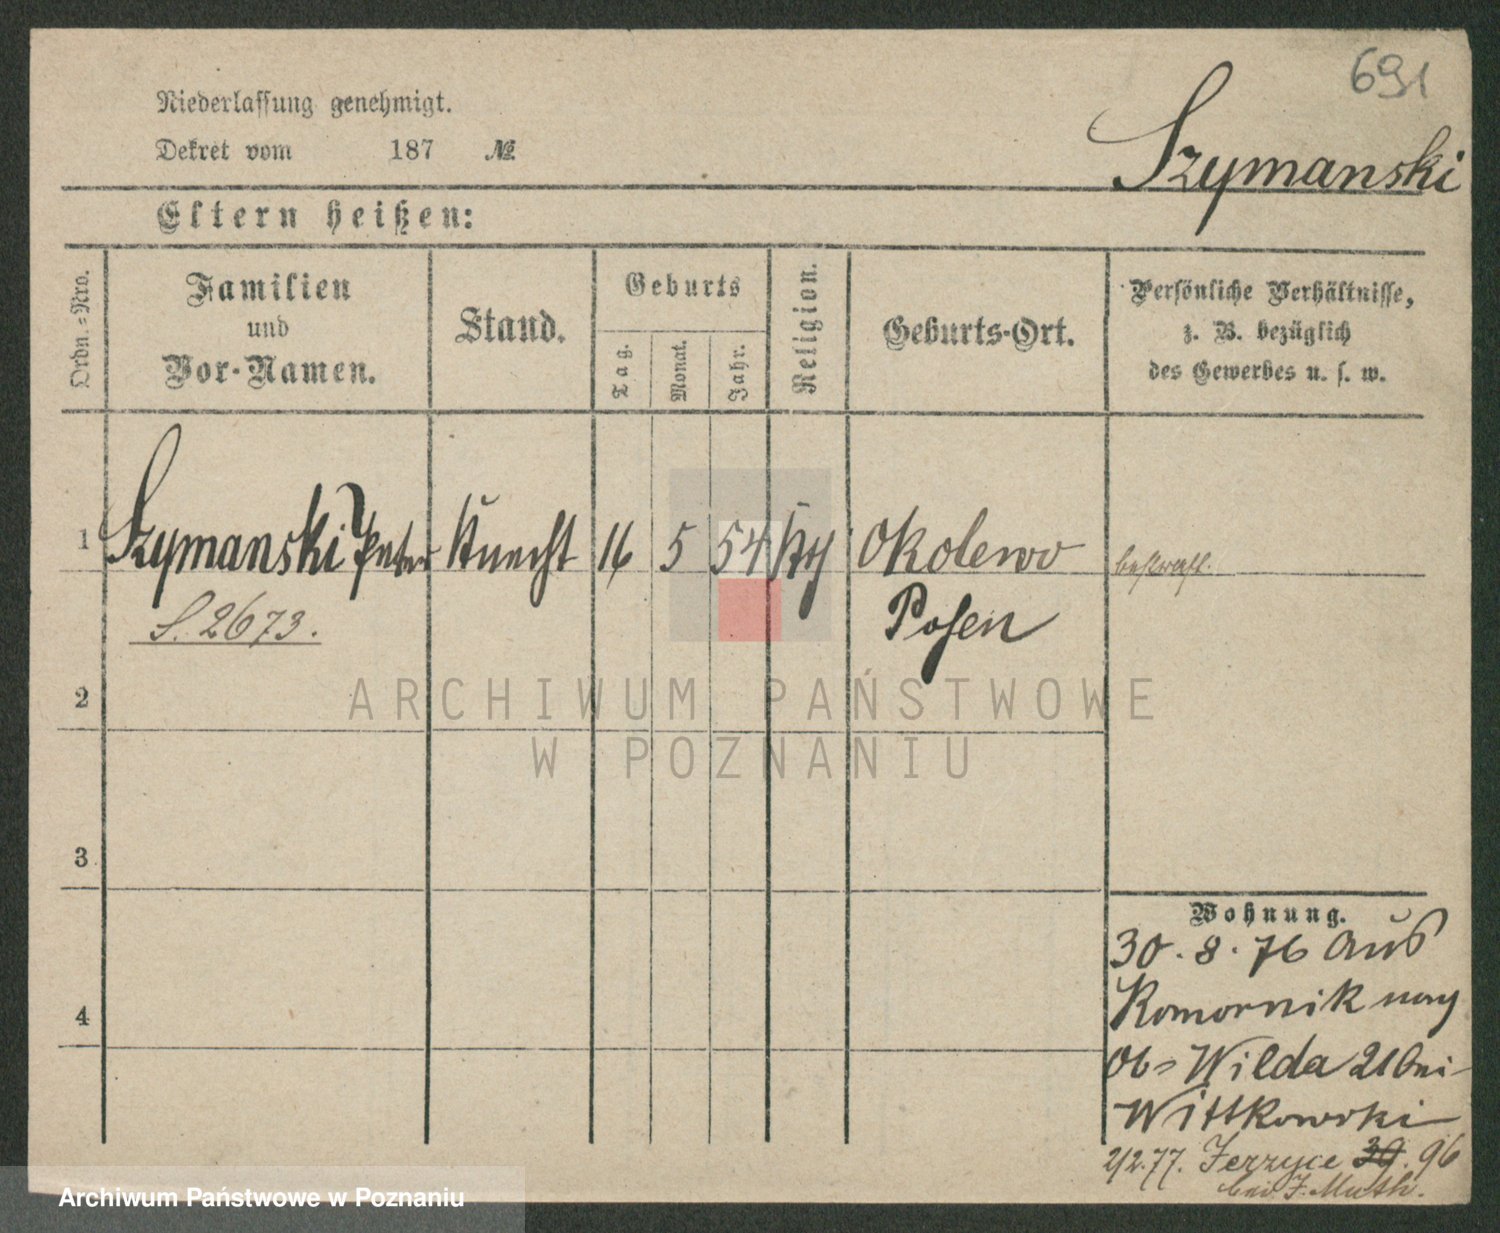 691
Niederlassung genehmigt.
Dekret vom 187 №
Szymanski
Eltern heißen:
Ordn.-Nro.
Familien
und
Vor-Namen.
Stand.
Geburts
Tag.
Monat.
Jahr.
Religion.
Geburts-Ort.
Persönliche Verhältnisse,
z. B. bezüglich
des Gewerbes u. s. w.
1 Szymanski Peter Knecht 16 5 54 Okolewo
S. 2673.
Posen
2
3
4
Wohnung.
30.8.76 aus
Komornik nach
Ob= Wilda 21 bei
Wittkowski
2/2.77. Jerzyce 39. 96
bei J. Muth.
ARCHIWUM PAŃSTWOWE
W POZNANIU
Archiwum Państwowe w Poznaniu